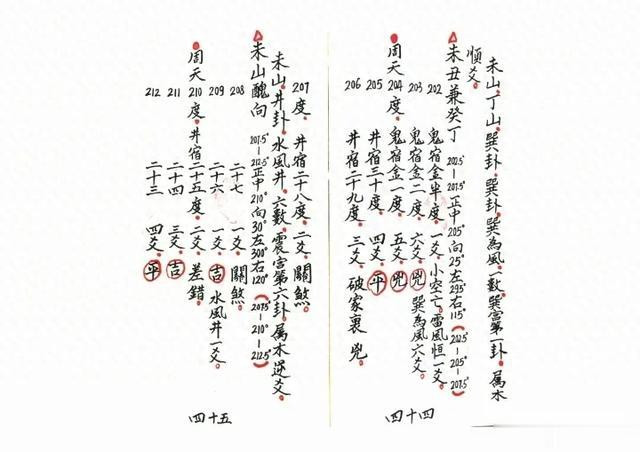 未山丁山巽卦巽卦巽為風一數巽宮第一卦屬木
順爻
未丑兼癸丁 202.5°—207.5°正中205°向25°左295°右115°(202.5°—205°—207.5°)
202 鬼宿金半度一爻小空亡雷風恒一爻
203 鬼宿金二度六爻凶巽為風六爻
周天204度鬼宿金一度五爻凶
205 井宿三十度四爻平
206 井宿二十九度三爻破家裹凶
四十四
207度井宿二十八度二爻關煞
未山井卦水風井六數震宮第六卦屬木逆爻
未山醜向 207.5°—212.5°正中210°向30°左300°右120°(207.5°—210°—212.5°)
208 二十七一爻關煞
209 二十六一爻吉水風井一爻
周天210度井宿二十五度二爻差錯
211 二十四三爻吉
212 二十三四爻平
四十五